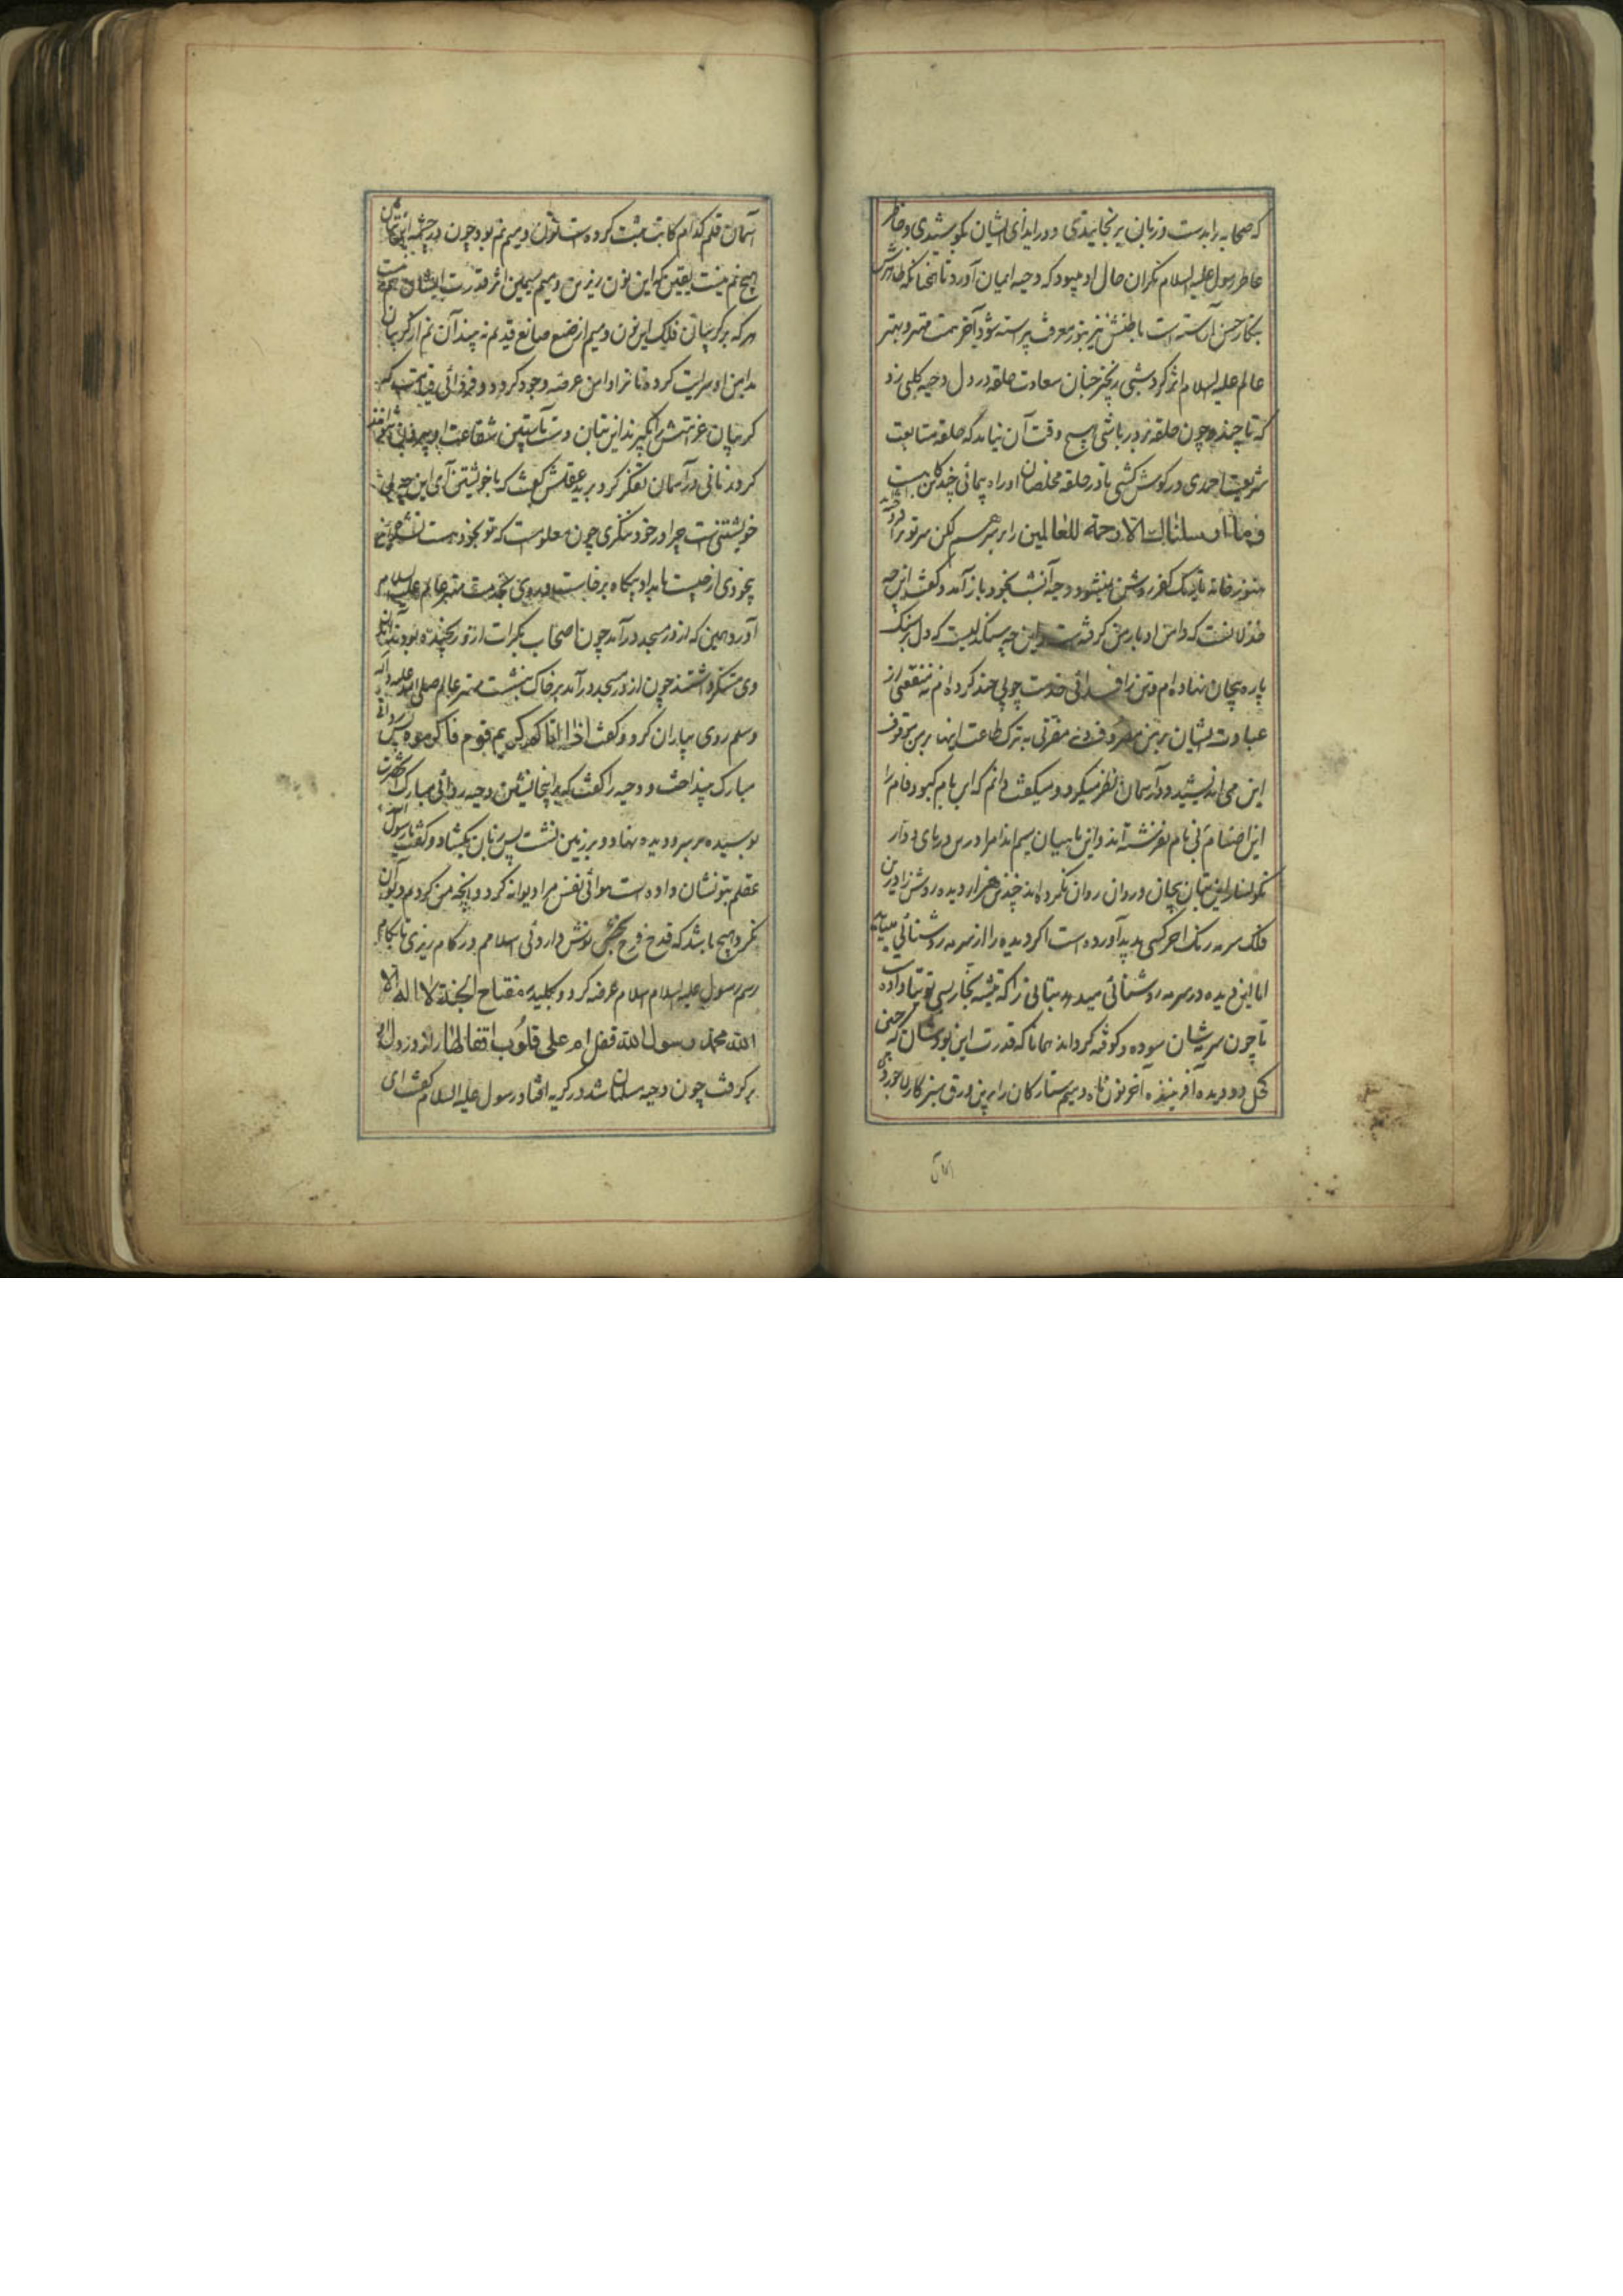 که صحابه را بدست و زبان برنجانیدی و در ایذای ایشان بکوشیدی و خاطر
خاطر رسول علیه السلام نگران حال او میبود که دحیه ایمان آورد تا همچنانکه ظاهرش
بنگار حسن آراسته است باطنش نیز بنور معرفت پیراسته شود آخر همت مهتر و بهتر
عالم علیه السلام اثر کرد شبی زنجیر جنبان سعادت حلقه در دل دحیه کلبی زد
که تا چند چون حلقه بر در باشی هیچ وقت آن نیامد که حلقه متابعت
شریعت احمدی در گوش کشی تا در حلقه مخلصان او راه یابی
وما ارسلناك الا رحمة للعالمین را بر سر
هنوز خانه تاریک کفر روشن میشود دحیه آن شب بخود باز آمد و گفت این چه
خذلانست که دامن ادبار من گرفته است و این چه سنگدلیست که دل بر سنگ
پاره بیجان نهاده ام و تن را فدائی خدمت چوبی چند کرده ام نه منفعتی از
عبادت ایشان بر من معروف و نه مضرتی به ترک طاعت اینها بر من موقوف
این می اندیشید و در آسمان نظر میکرد و میگفت دانم که این بام کبود فام را
این اصنام بی نام نفرشته اند و این ماهیان سیم اندام را درین دریای دوار
نگونسار این بتان بیجان روان نکرده اند چندین هزار دیده روشن را درین
فلک سرمه رنگ آخر کسی پدید آورده است اگر دیده را از سرمه روشنائی میباید
اما این دیده در سرمه روشنائی میدهد بتانی را که تیشه نجار
تا چون سر ایشان سوده و کوفته گرداند همانا که قدرت این نبود
کحل دو دیده آفرینند آخر نون ماه و میم ستارگان را برین ورق سبز کار
آسمان
آسمان قلم کدام کاتب ثبت کرده است نون و میم نم بود چون در چشمه این بتان
هیچ نم نیست یقین که این نون زرین و میم سیمین اثر قدرت ایشان هم نیست
هر که بر گریبان فلک این نون و میم از صنع صانع قدیم نه بیند آن نم از گریبان
بدامن او سرایت کرده تا تر دامن عرصه وجود گردد و فردای قیامت که
گریبان عزتش گیرند این بتان دست آستین شفاعت او
کرد زمانی در آسمان تفکر کرد برید عقلش گفت که با خویشتن آی این چه بی
خویشتنی است چرا در خود ننگری چون معلوم است که تو بخود هست نشدی
بیخودی از چیست بامداد پگاه برخاست و روی بخدمت مهتر عالم علیه السلام
آورد همین که از در مسجد در آمد چون اصحاب بکرات ازو رنجیده بودند
وی متنکر داشتند چون از در مسجد در آمد بر خاک بنشست مهتر عالم صلی الله علیه وآله
وسلم روی بیاران کرد و گفت اذا اتاکم کریم قوم فاکرموه پس ردای
مبارک بینداخت و دحیه را گفت که برانجا نشین دحیه ردائی مبارک آنحضرت
بوسیده بر سر و دیده نهاد و بر زمین نشست پس زبان بگشاد و گفت یا رسول الله
عقلم بتو نشان داده است هوائی نفس مرا دیوانه کرد و آنچه من کردم دیوان
نکرد هیچ باشد که قدح فرح بخش نوش داروئی اسلامم در کام ریزی تا بکام
رسم رسول علیه السلام اسلام عرضه کرد و بکلید مفتاح الجنة لا اله الا
الله محمد رسول الله قفل ام علی قلوب اقفالها را از در دل او
بر گرفت چون دحیه مسلمان شد در گریه افتاد رسول علیه السلام گفت ای